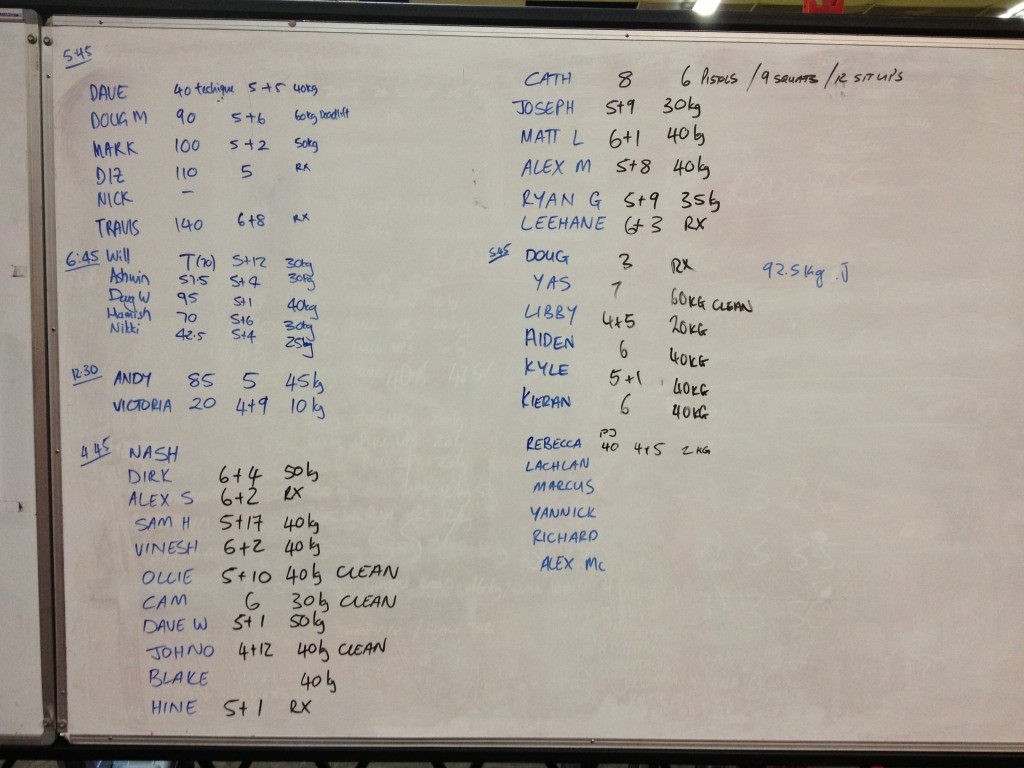 5:45
DAVE 40 techique 5+5 40kg
DOUG M 90 5+6 60kg Deadlift
MARK 100 5+2 50kg
DIZ 110 5 RX
NICK –
TRAVIS 140 6+8 RX
6:45 Will T(70) 5+12 30kg
Ashwin 57.5 5+4 30kg
Doug W 95 5+1 40kg
Hamish 70 5+6 30kg
Nikki 42.5 5+4 25kg
12:30 ANDY 85 5 45kg
VICTORIA 20 4+9 10kg
4:45 NASH
DIRK 6+4 50kg
ALEX S 6+2 RX
SAM H 5+17 40kg
VINESH 6+2 40kg
OLLIE 5+10 40kg CLEAN
CAM 6 30kg CLEAN
DAVE W 5+1 50kg
JOHNO 4+12 40kg CLEAN
BLAKE 40kg
HINE 5+1 RX
CATH 8 6 PISTOLS / 9 SQUATS / 12 SIT UPS
JOSEPH 5+9 30kg
MATT L 6+1 40kg
ALEX M 5+8 40kg
RYAN G 5+9 35kg
LEEHANE 6+3 RX
5:45 DOUG 3 RX 92.5kg J
YAS 7 60KG CLEAN
LIBBY 4+5 20KG
AIDEN 6 40KG
KYLE 5+1 40KG
KIERAN 6 40KG
REBECCA PJ 40 4+5 2KG
LACHLAN
MARCUS
YANNICK
RICHARD
ALEX Mc